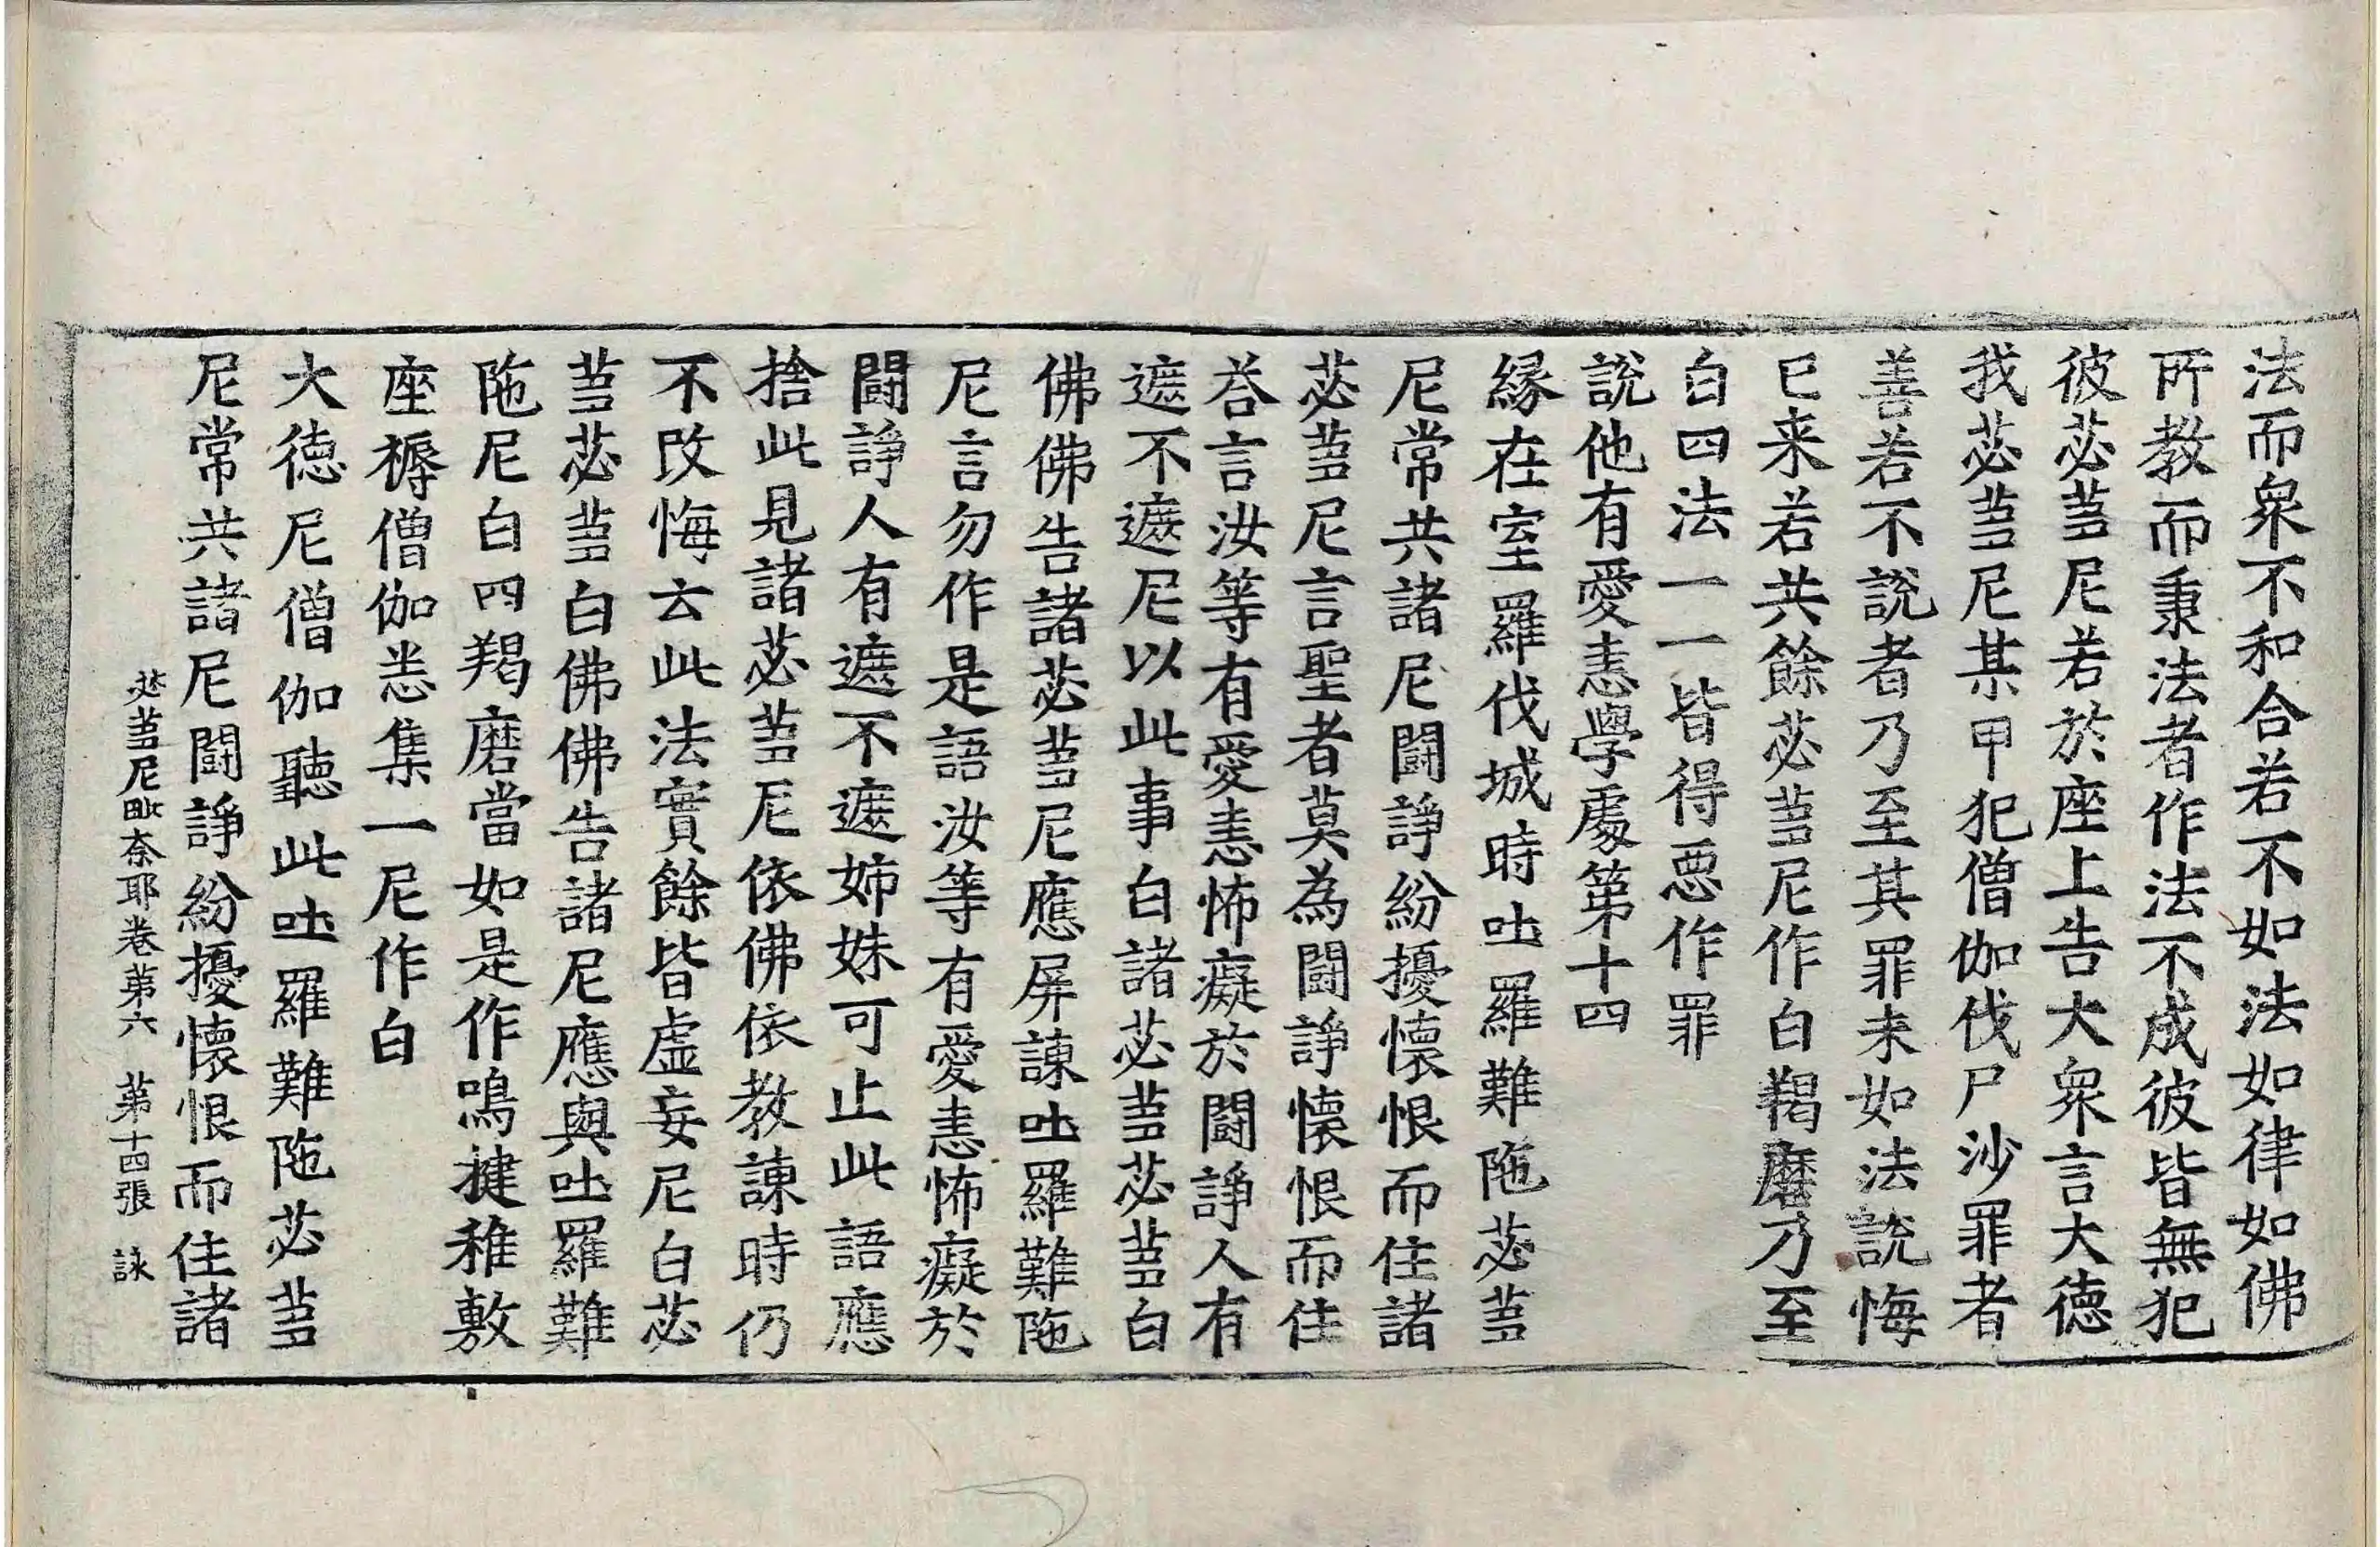 法而衆不和合若不如法如律如佛
所教而秉法者作法不成彼皆無犯
彼苾芻尼若於座上告大衆言大徳
我苾芻尼某甲犯僧伽伐尸沙罪者
善若不說者乃至其罪未如法說悔
已来若共餘苾芻尼作白羯磨乃至
白四法一一皆得惡作罪
說他有愛恚學處第十四
緣在室羅伐城時吐羅難陁苾芻
尼常共諸尼闘諍紛擾懷恨而住諸
苾芻尼言聖者莫為闘諍懷恨而住
荅言汝等有愛恚怖癡於闘諍人有
遮不遮尼以此事白諸苾芻苾芻白
佛佛告諸苾芻尼應屏諫吐羅難陁
尼言勿作是語汝等有愛恚怖癡於
闘諍人有遮不遮姉妹可止此語應
捨此見諸苾芻尼依佛依教諫時仍
不改悔云此法實餘皆虛妄尼白苾
芻苾芻白佛佛告諸尼應與吐羅難
陁尼白四羯磨當如是作鳴揵稚敷
座褥僧伽恙集一尼作白
大徳尼僧伽聽此吐羅難陁苾芻
尼常共諸尼闘諍紛擾懷恨而住諸
苾芻尼毗奈耶卷第六　第十四張　詠